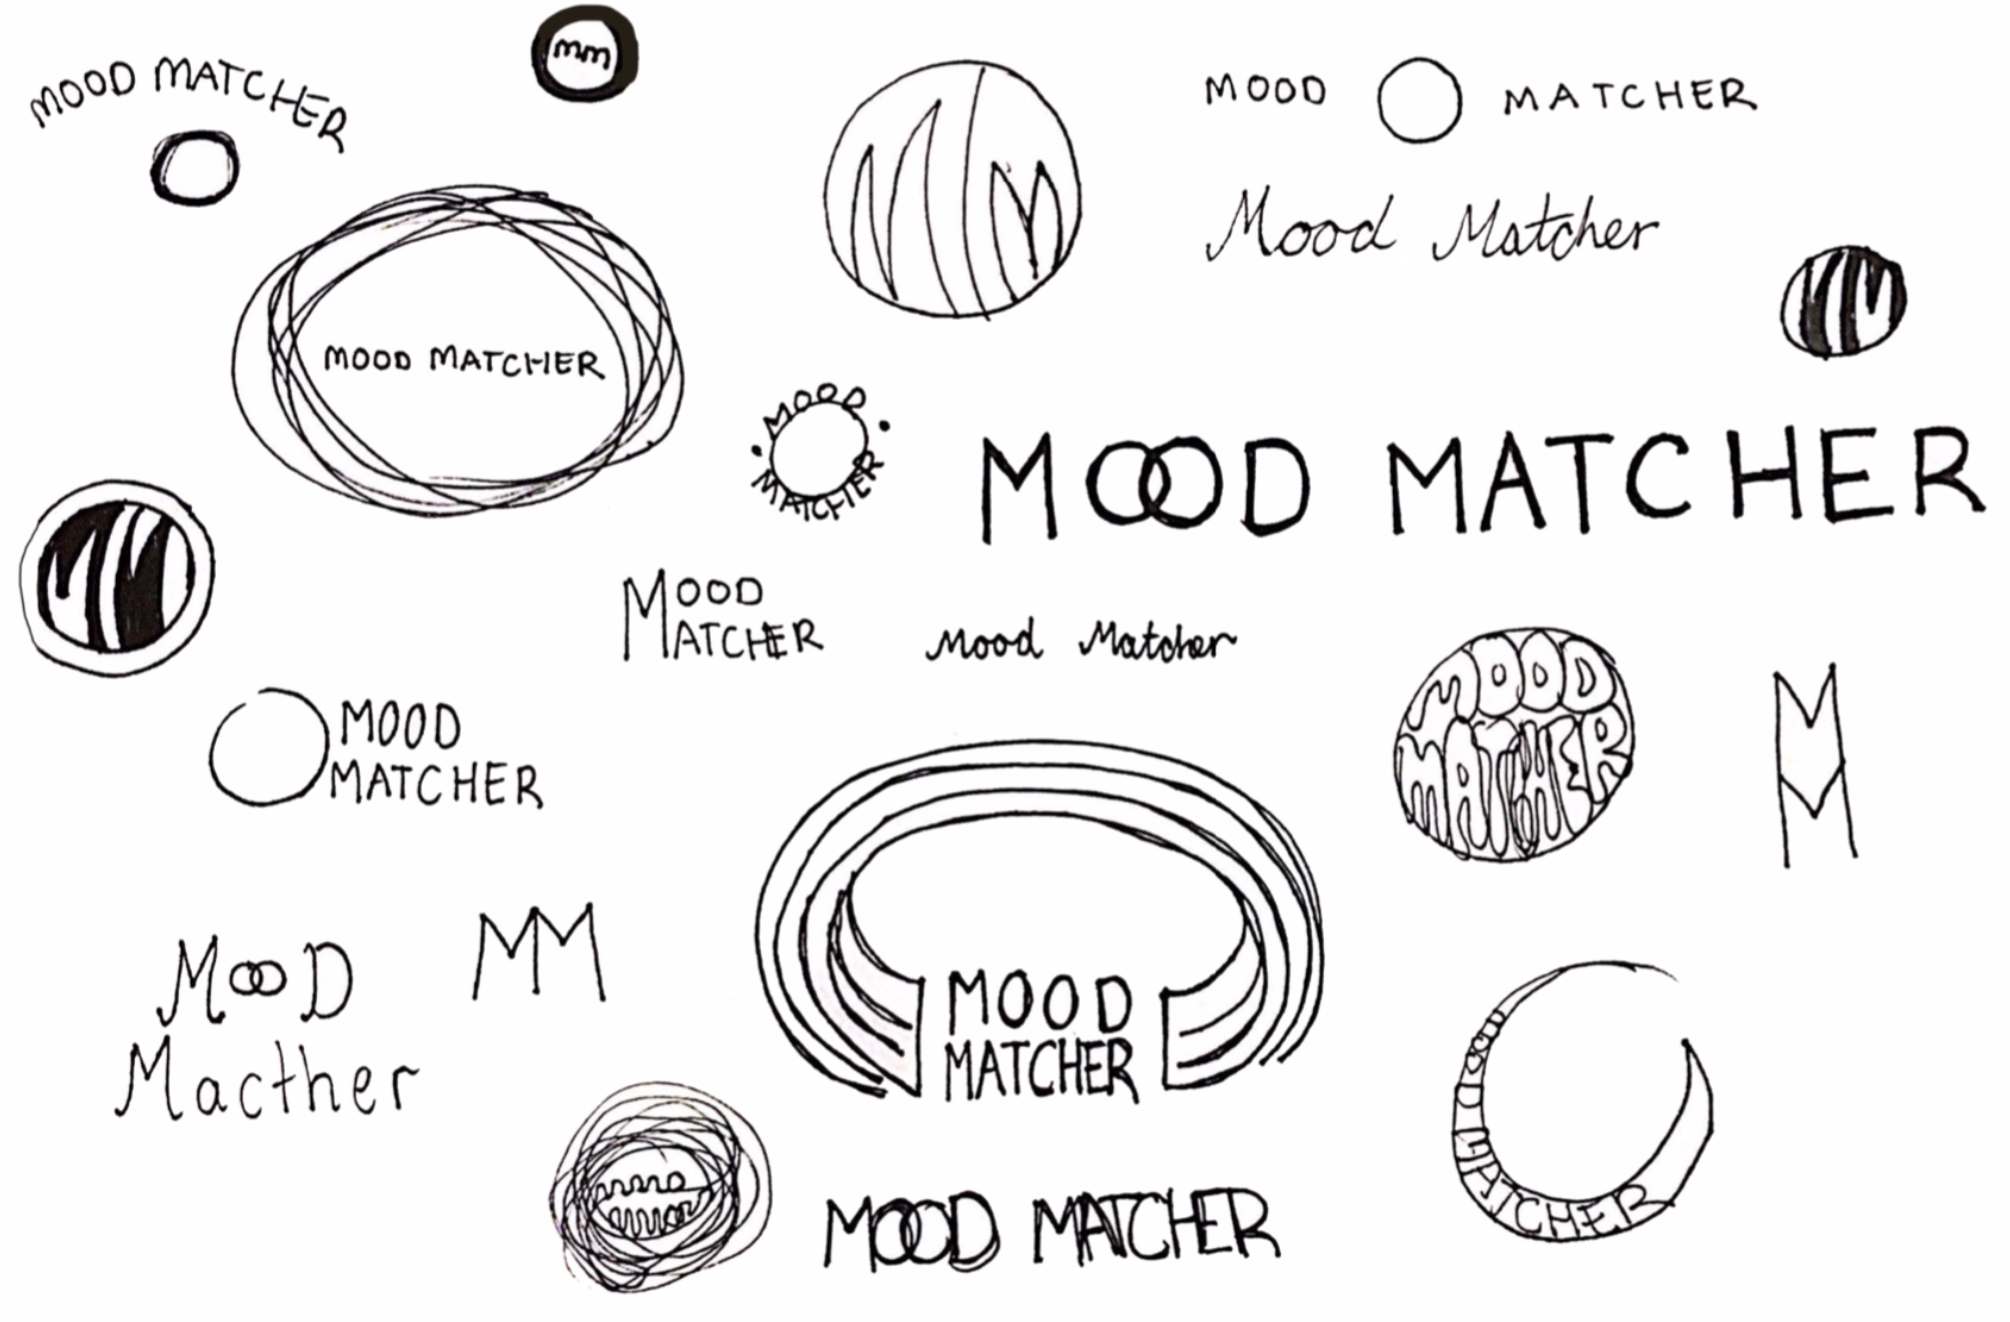 mm
MOOD MATCHER
MOOD MATCHER
Mood Matcher
MM
MM
MOOD MATCHER
MOOD
MATCHER
MOOD MATCHER
MM
MOOD
MATCHER
Mood Matcher
MOOD
MATCHER
MOOD
MATCHER
MM
MOOD
Macther
MM
MOOD
MATCHER
MOOD MATCHER
MOOD MATCHER